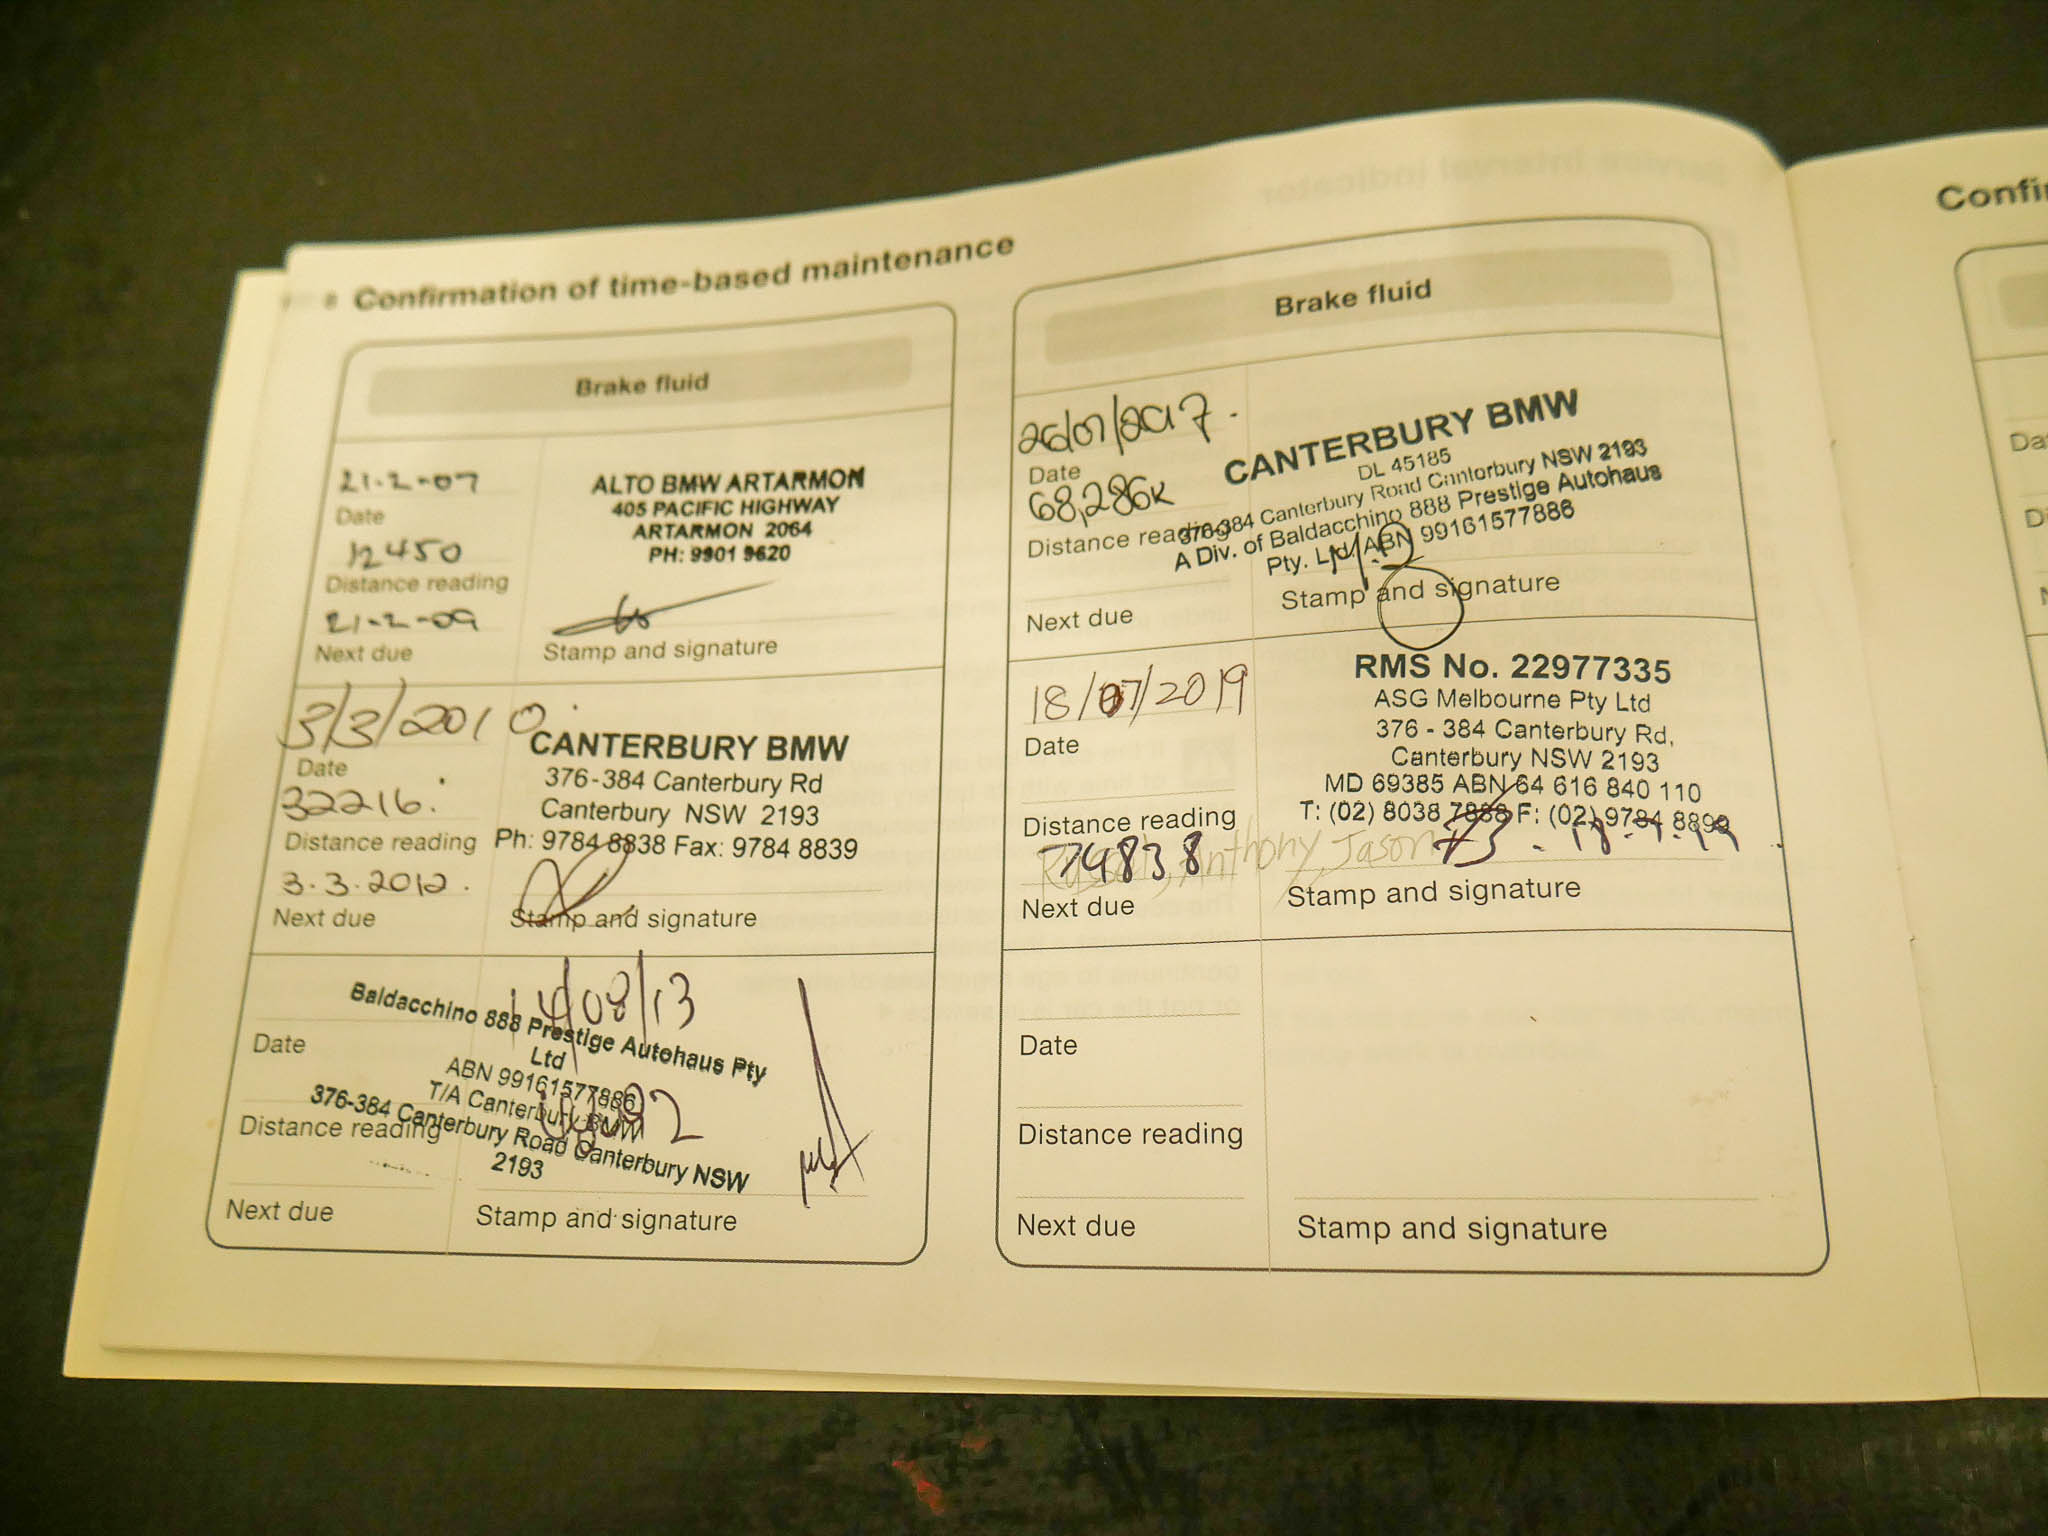 Confirmation of time-based maintenance
Brake fluid
21-2-07
Date
12450
Distance reading
21-2-09
Next due
ALTO BMW ARTARMON
405 PACIFIC HIGHWAY
ARTARMON 2064
PH: 9901 9620
Stamp and signature
3/3/2010
Date
32216.
Distance reading
3.3.2012.
Next due
CANTERBURY BMW
376-384 Canterbury Rd
Canterbury NSW 2193
Ph: 9784 8838 Fax: 9784 8839
Stamp and signature
14/08/13
Date
Distance reading
Next due
Baldacchino 888 Prestige Autohaus Pty
Ltd
ABN 99161577886
T/A Canterbury BMW
376-384 Canterbury Road Canterbury NSW
2193
Stamp and signature
Brake fluid
26/07/2017.
Date
68,286K
Distance reading
Next due
CANTERBURY BMW
DL 45185
376-384 Canterbury Road Canterbury NSW 2193
A Div. of Baldacchino 888 Prestige Autohaus
Pty. Ltd ABN 99161577886
Stamp and signature
18/07/2019
Date
Distance reading
74838
Next due
RMS No. 22977335
ASG Melbourne Pty Ltd
376 - 384 Canterbury Rd,
Canterbury NSW 2193
MD 69385 ABN 64 616 840 110
T: (02) 8038 7888 F: (02) 9784 8899
Anthony, Jason
18-7-19
Stamp and signature
Date
Distance reading
Next due
Stamp and signature